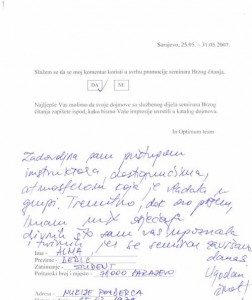 Sarajevo, 25.03. - 31.03.2007.
Slažem se da se moj komentar koristi u svrhu promocije seminara Brzog čitanja.
DA NE
Najljepše Vas molimo da svoje dojmove sa službenog dijela seminara Brzog
čitanja zapišete ispod, kako bismo Vaše impresije uvrstili u katalog dojmova.
In Optimum team
Zadovoljna sam pristupom
instruktora, dostupnošću,
atmosferom koja je vladala u
grupi. Trenutno, dok ovo pišem,
imam mix osjećaja
divnih što sam vas upoznala
i tužnih jer se seminar završava
danas
Ugodan
život!
Ime:
Prezime:
Zanimanje: STUDENT
Poštanski broj i mjesto: SARAJEVO